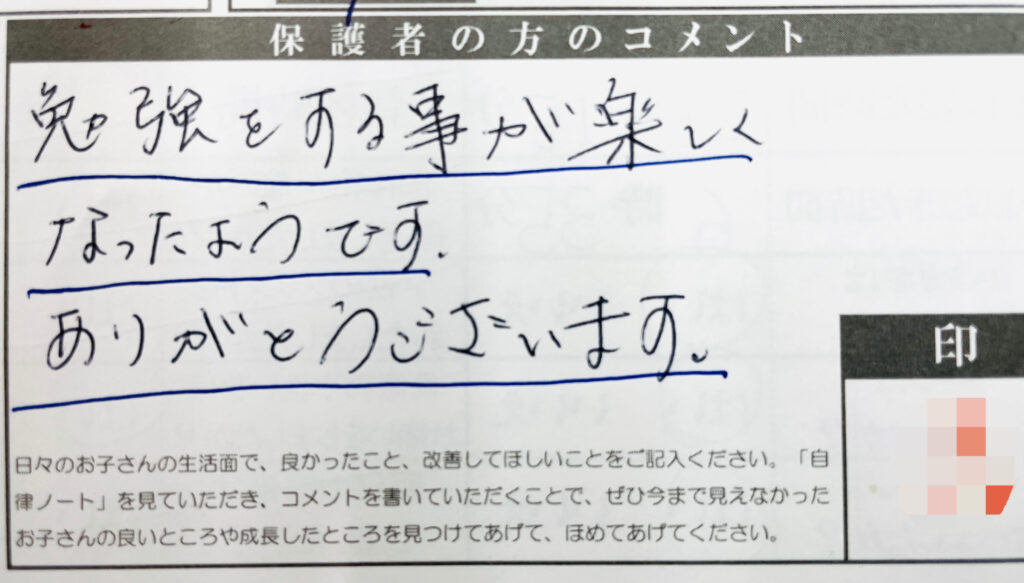 保護者の方のコメント
勉強をする事が楽しく
なったようです.
ありがとうございます.
印
日々のお子さんの生活面で、良かったこと、改善してほしいことをご記入ください。「自
律ノート」を見ていただき、コメントを書いていただくことで、ぜひ今まで見えなかった
お子さんの良いところや成長したところを見つけてあげて、ほめてあげてください。